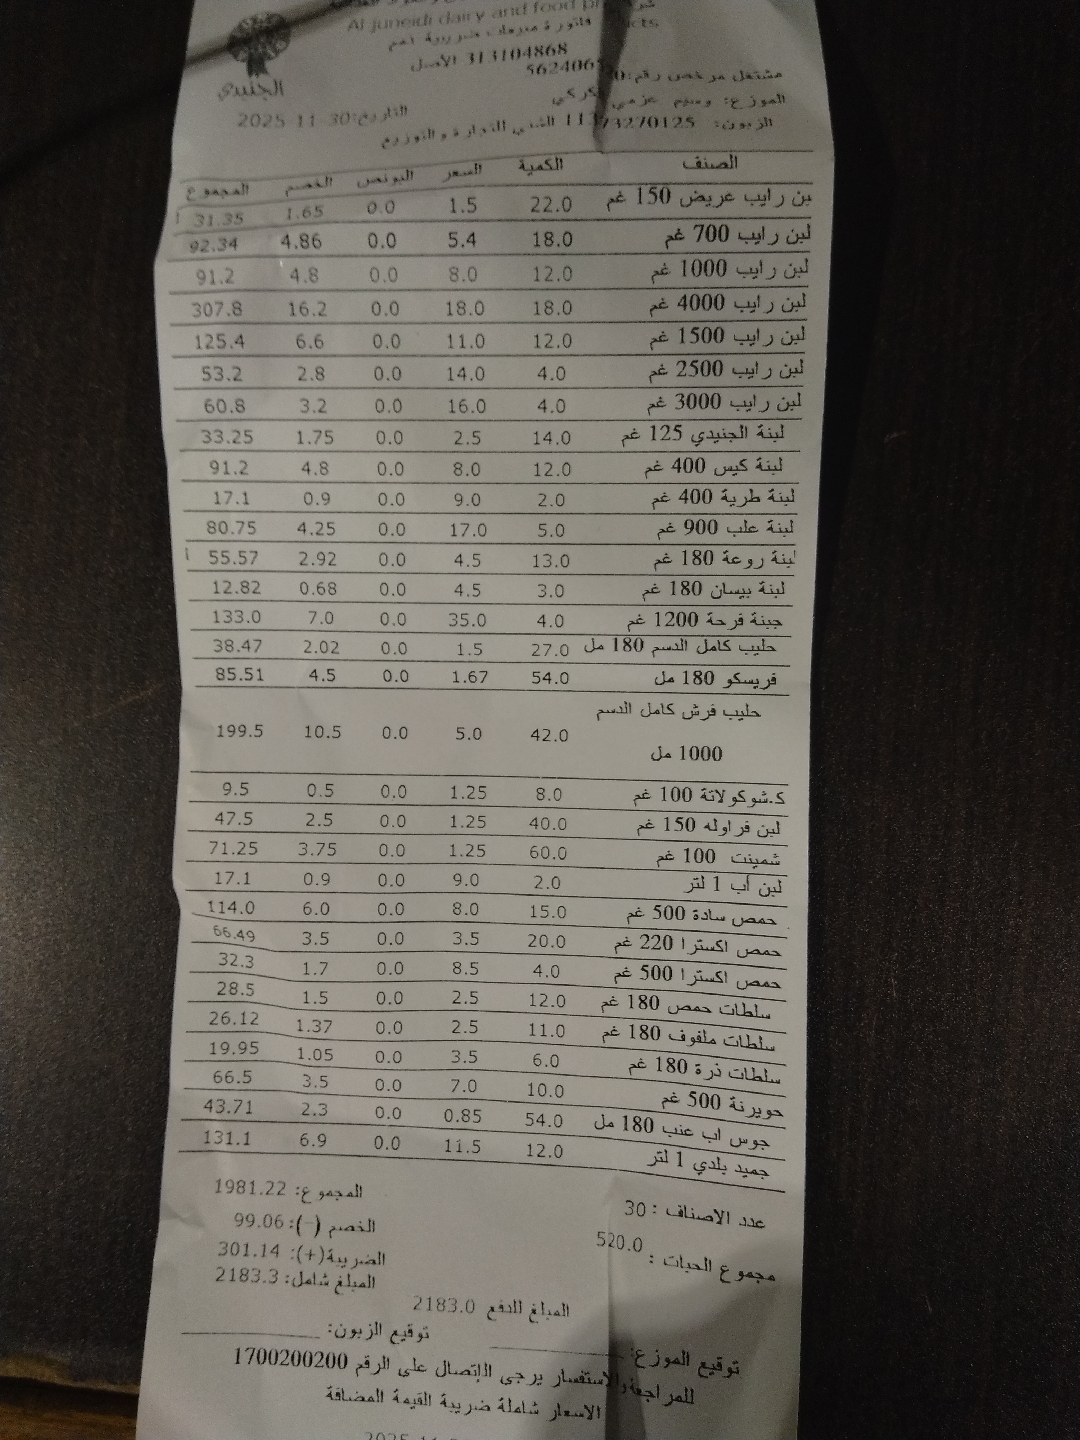 Al Juneidi dairy and food
فاتورة مبيعات ضريبية
313104868 الأصل
الجنيدي
مشتغل مرخص رقم:
الموزع: وسيم عزمي
الزبون: للتجارة والتوزيع
التاريخ:30-11-2025
الصنف الكمية السعر البونص الخصم المجموع
بن رايب عريض 150 غم 22.0 1.5 0.0 1.65 31.35
لبن رايب 700 غم 18.0 5.4 0.0 4.86 92.34
لبن رايب 1000 غم 12.0 8.0 0.0 4.8 91.2
لبن رايب 4000 غم 18.0 18.0 0.0 16.2 307.8
لبن رايب 1500 غم 12.0 11.0 0.0 6.6 125.4
لبن رايب 2500 غم 4.0 14.0 0.0 2.8 53.2
لبن رايب 3000 غم 4.0 16.0 0.0 3.2 60.8
لبنة الجنيدي 125 غم 14.0 2.5 0.0 1.75 33.25
لبنة كيس 400 غم 12.0 8.0 0.0 4.8 91.2
لبنة طرية 400 غم 2.0 9.0 0.0 0.9 17.1
لبنة علب 900 غم 5.0 17.0 0.0 4.25 80.75
لبنة روعة 180 غم 13.0 4.5 0.0 2.92 55.57
لبنة بيسان 180 غم 3.0 4.5 0.0 0.68 12.82
جبنة فرحة 1200 غم 4.0 35.0 0.0 7.0 133.0
حليب كامل الدسم 180 مل 27.0 1.5 0.0 2.02 38.47
فريسكو 180 مل 54.0 1.67 0.0 4.5 85.51
حليب فرش كامل الدسم
1000 مل 42.0 5.0 0.0 10.5 199.5
ك.شوكولاتة 100 غم 8.0 1.25 0.0 0.5 9.5
لبن فراوله 150 غم 40.0 1.25 0.0 2.5 47.5
شمينت 100 غم 60.0 1.25 0.0 3.75 71.25
لبن أب 1 لتر 2.0 9.0 0.0 0.9 17.1
حمص سادة 500 غم 15.0 8.0 0.0 6.0 114.0
حمص اكسترا 220 غم 20.0 3.5 0.0 3.5 66.49
حمص اكسترا 500 غم 4.0 8.5 0.0 1.7 32.3
سلطات حمص 180 غم 12.0 2.5 0.0 1.5 28.5
سلطات ملفوف 180 غم 11.0 2.5 0.0 1.37 26.12
سلطات ذرة 180 غم 6.0 3.5 0.0 1.05 19.95
حويرنة 500 غم 10.0 7.0 0.0 3.5 66.5
جوس اب عنب 180 مل 54.0 0.85 0.0 2.3 43.71
جميد بلدي 1 لتر 12.0 11.5 0.0 6.9 131.1
عدد الاصناف : 30
مجموع الحبات : 520.0
المجموع: 1981.22
الخصم (-): 99.06
الضريبة(+): 301.14
المبلغ شامل: 2183.3
المبلغ للدفع 2183.0
توقيع الزبون:
توقيع الموزع:
للمراجعة والاستفسار يرجى الإتصال على الرقم 1700200200
الاسعار شاملة ضريبة القيمة المضافة